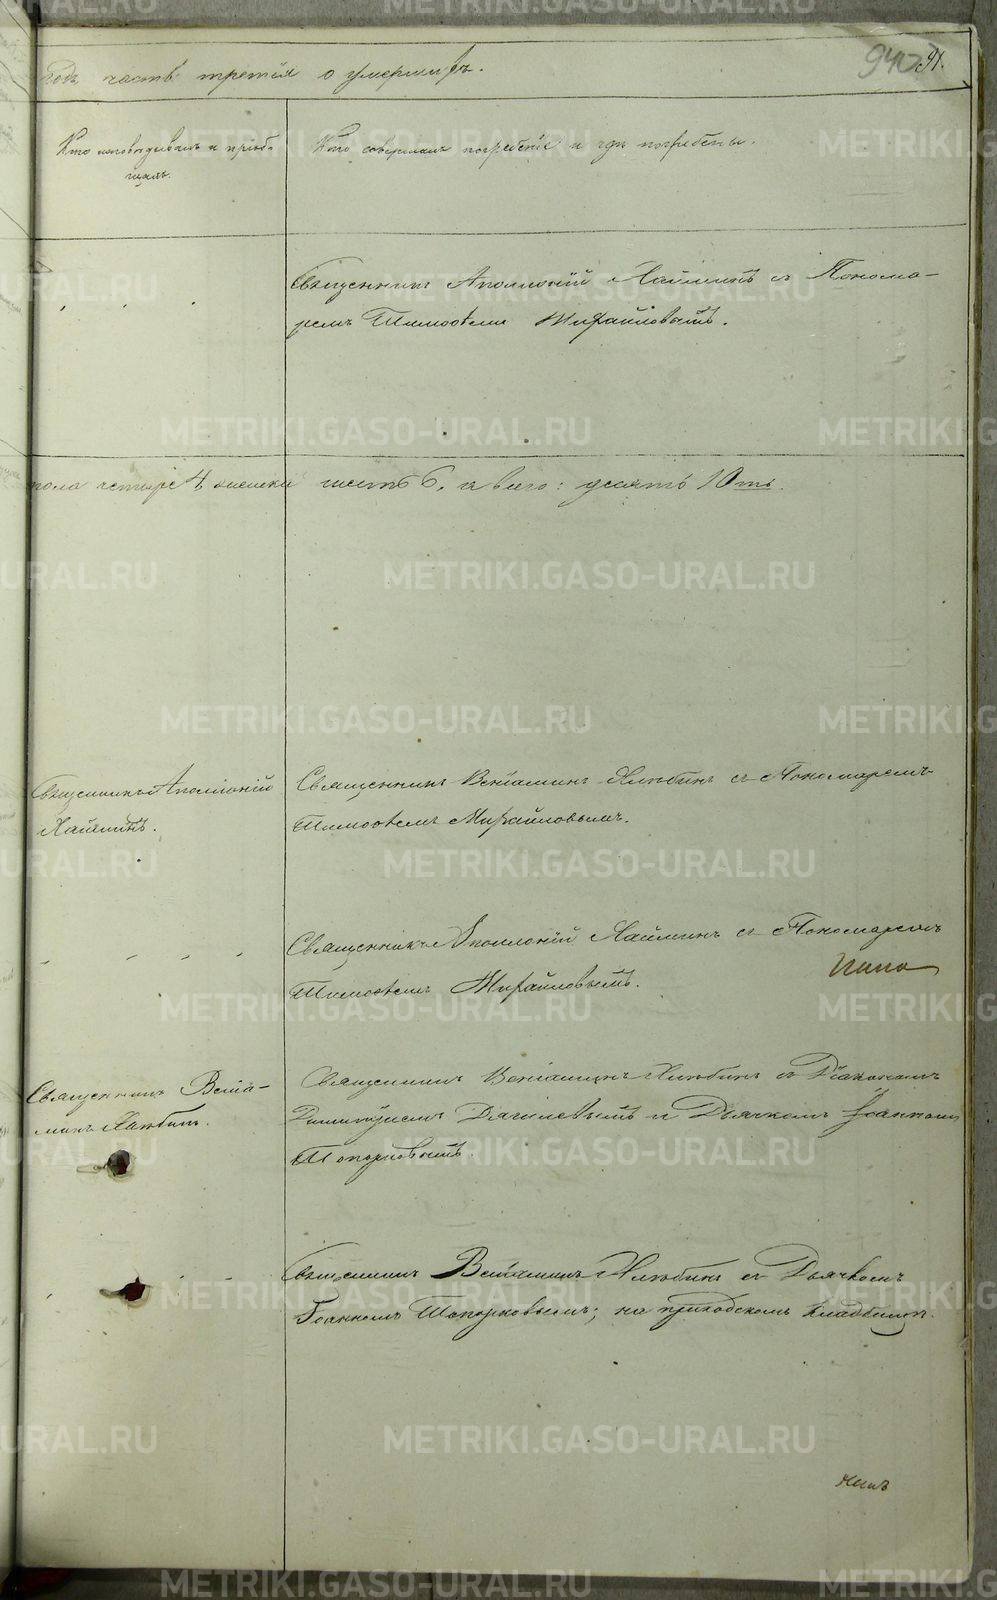 годъ часть третія о умершихъ.
940 91.
Кто исповѣдывалъ и пріоб-
щалъ.
Кто совершалъ погребеніе и гдѣ погребены.
Священникъ Аполлоній Лаклинъ съ Понома-
ремъ Тимоѳеемъ Михайловымъ.
пола четыре 4, женска шесть 6, а всего: десять 10ть.
Священникъ Аполлоній
Священникъ Веніаминъ съ Пономаремъ
Тимоѳеемъ Михайловымъ.
Священникъ Аполлоній съ Пономаремъ
Тимоѳеемъ Михайловымъ.
Священникъ Веніа-
минъ
Священникъ Веніаминъ съ Діакономъ
Димитріемъ и Дьячкомъ Іоанномъ
Топорковымъ.
Священникъ Веніаминъ съ Дьячкомъ
Іоанномъ Топорковымъ; на приходскомъ кладбищѣ.
METRIKI.GASO-URAL.RU